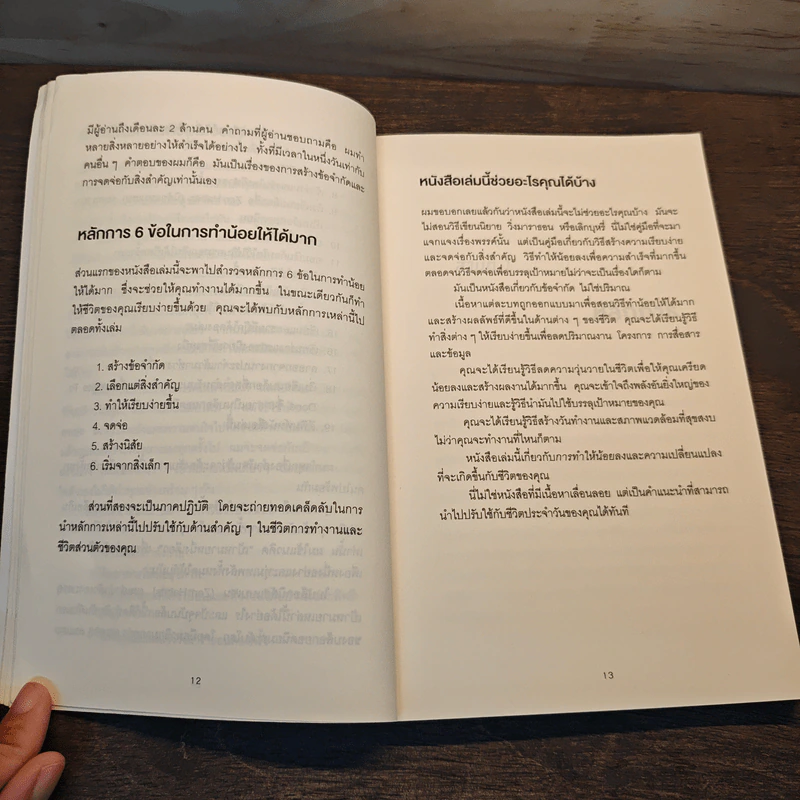 มีผู้อ่านถึงเดือนละ 2 ล้านคน คำถามที่ผู้อ่านชอบถามคือ ผมทำ
หลายสิ่งหลายอย่างให้สำเร็จได้อย่างไร ทั้งที่มีเวลาในหนึ่งวันเท่ากับ
คนอื่น ๆ คำตอบของผมก็คือ มันเป็นเรื่องของการสร้างข้อจำกัดและ
การจดจ่อกับสิ่งสำคัญเท่านั้นเอง
หลักการ 6 ข้อในการทำน้อยให้ได้มาก
ส่วนแรกของหนังสือเล่มนี้จะพาไปสำรวจหลักการ 6 ข้อในการทำน้อย
ให้ได้มาก ซึ่งจะช่วยให้คุณทำงานได้มากขึ้น ในขณะเดียวกันก็ทำ
ให้ชีวิตของคุณเรียบง่ายขึ้นด้วย คุณจะได้พบกับหลักการเหล่านี้ไป
ตลอดทั้งเล่ม
1. สร้างข้อจำกัด
2. เลือกแต่สิ่งสำคัญ
3. ทำให้เรียบง่ายขึ้น
4. จดจ่อ
5. สร้างนิสัย
6. เริ่มจากสิ่งเล็ก ๆ
ส่วนที่สองจะเป็นภาคปฏิบัติ โดยจะถ่ายทอดเคล็ดลับในการ
นำหลักการเหล่านี้ไปปรับใช้กับด้านสำคัญ ๆ ในชีวิตการทำงานและ
ชีวิตส่วนตัวของคุณ
12
หนังสือเล่มนี้ช่วยอะไรคุณได้บ้าง
ผมขอบอกเลยแล้วกันว่าหนังสือเล่มนี้จะไม่ช่วยอะไรคุณบ้าง มันจะ
ไม่สอนวิธีเขียนนิยาย วิ่งมาราธอน หรือเลิกบุหรี่ นี่ไม่ใช่คู่มือที่จะมา
แจกแจงเรื่องพรรค์นั้น แต่เป็นคู่มือเกี่ยวกับวิธีสร้างความเรียบง่าย
และจดจ่อกับสิ่งสำคัญ วิธีทำให้น้อยลงเพื่อความสำเร็จที่มากขึ้น
ตลอดจนวิธีจดจ่อเพื่อบรรลุเป้าหมายไม่ว่าจะเป็นเรื่องใดก็ตาม
มันเป็นหนังสือเกี่ยวกับข้อจำกัด ไม่ใช่ปริมาณ
เนื้อหาแต่ละบทถูกออกแบบมาเพื่อสอนวิธีทำน้อยให้ได้มาก
และสร้างผลลัพธ์ที่ดีขึ้นในด้านต่าง ๆ ของชีวิต คุณจะได้เรียนรู้วิธี
ทำสิ่งต่าง ๆ ให้เรียบง่ายขึ้นเพื่อลดปริมาณงาน โครงการ การสื่อสาร
และข้อมูล
คุณจะได้เรียนรู้วิธีลดความวุ่นวายในชีวิตเพื่อให้คุณเครียด
น้อยลงและสร้างผลงานได้มากขึ้น คุณจะเข้าใจถึงพลังอันยิ่งใหญ่ของ
ความเรียบง่ายและรู้วิธีนำมันไปใช้บรรลุเป้าหมายของคุณ
คุณจะได้เรียนรู้วิธีสร้างวันทำงานและสภาพแวดล้อมที่สุขสงบ
ไม่ว่าคุณจะทำงานที่ไหนก็ตาม
หนังสือเล่มนี้เกี่ยวกับการทำให้น้อยลงและความเปลี่ยนแปลง
ที่จะเกิดขึ้นกับชีวิตของคุณ
นี่ไม่ใช่หนังสือที่มีเนื้อหาเลื่อนลอย แต่เป็นคำแนะนำที่สามารถ
นำไปปรับใช้กับชีวิตประจำวันของคุณได้ทันที
13